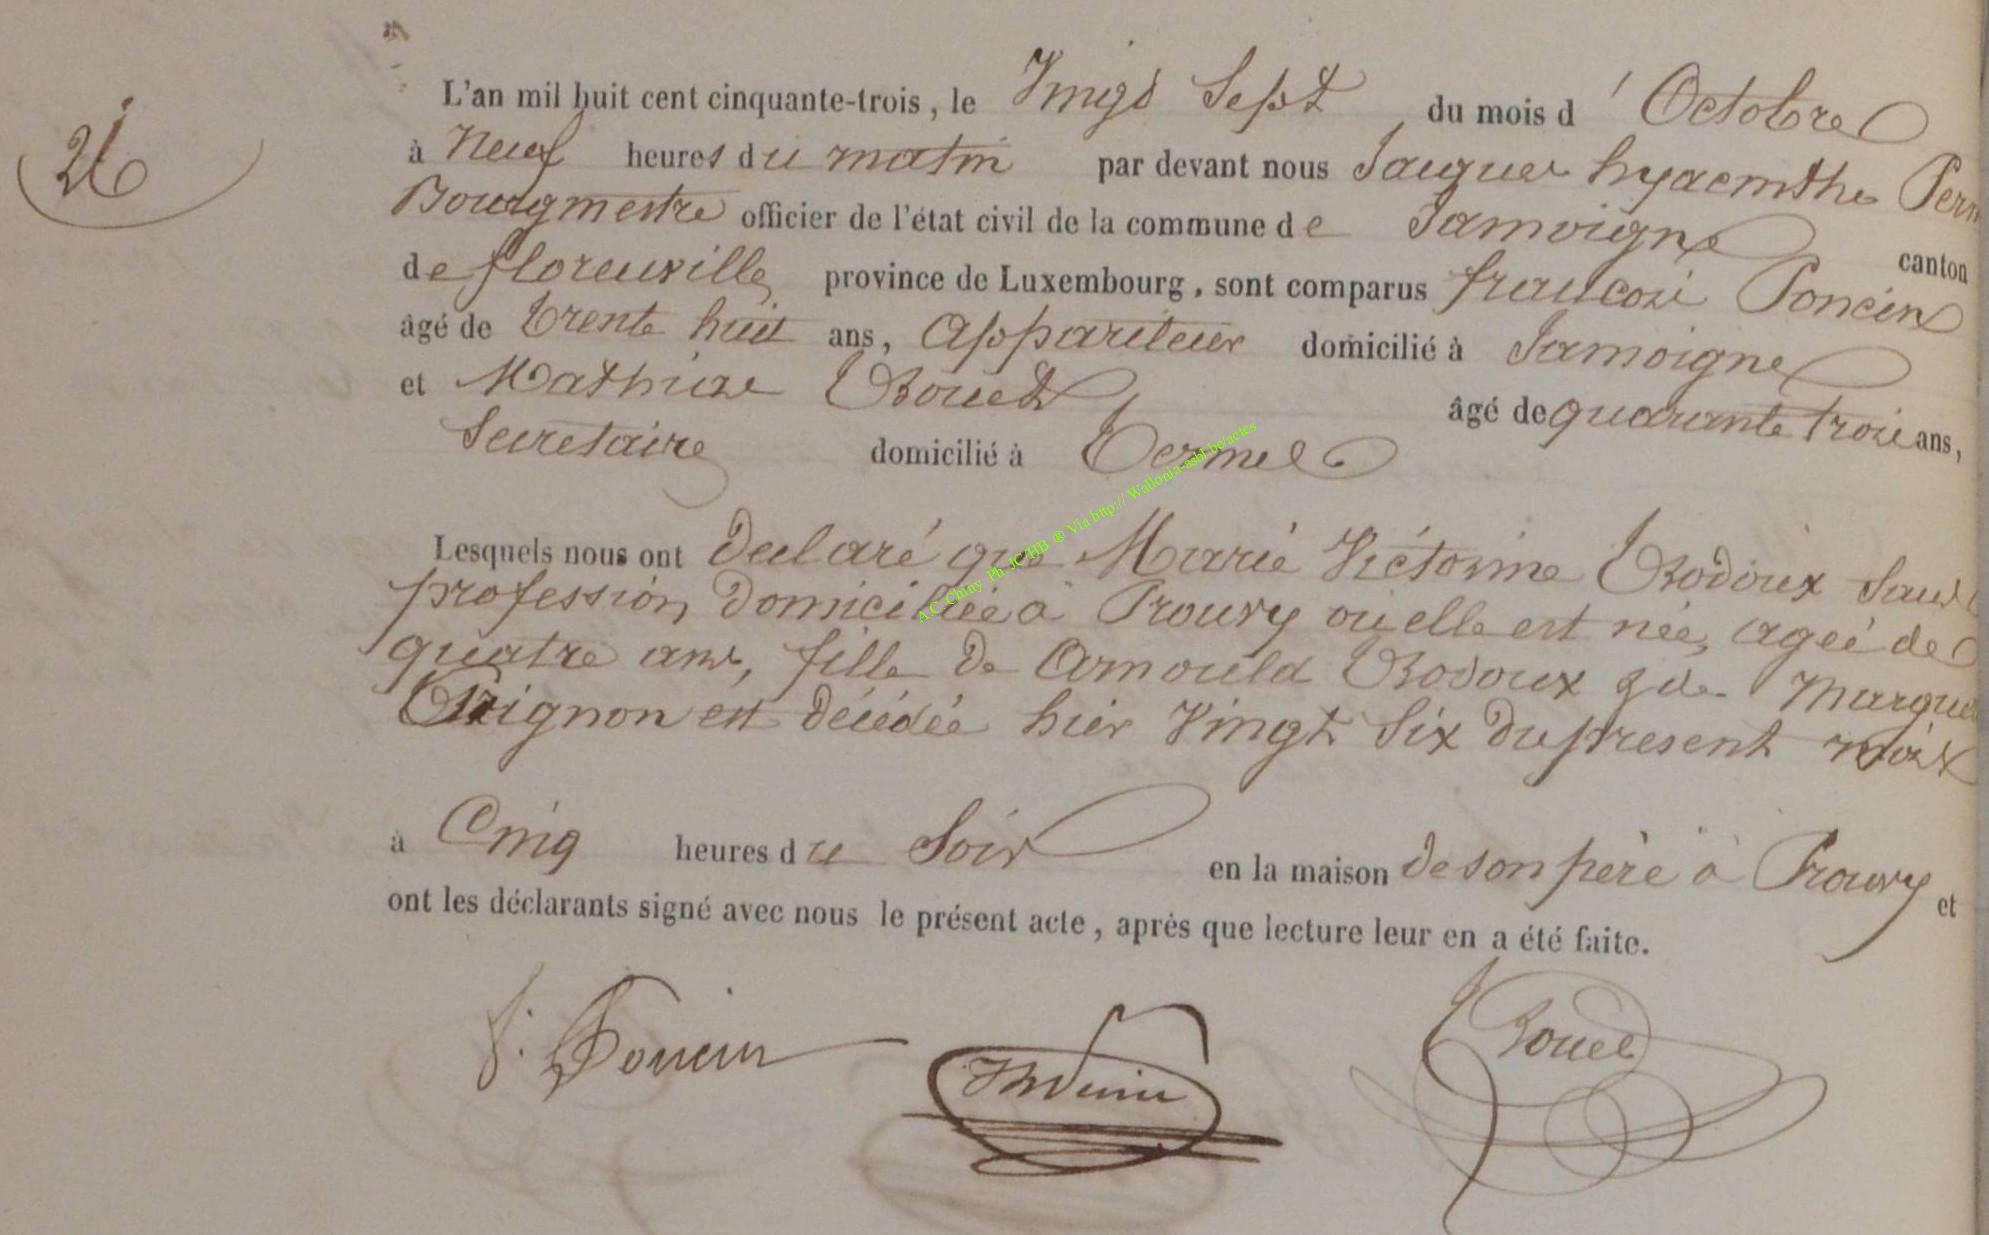 26
L'an mil huit cent cinquante-trois, le Vingt Sept du mois d'Octobre
à Neuf heures du matin par devant nous Jacques hyacinthe
Bourgmestre officier de l'état civil de la commune de Jamoigne canton
de florenville province de Luxembourg, sont comparus francois Poncin
âgé de trente huit ans, Appariteur domicilié à Jamoigne
et Mathieu Rouet âgé de quarante trois ans,
Secretaire domicilié à Termes
A.C. Chiny Ph JC/HB ® Via http:// Wallonia-asbl.be/actes
Lesquels nous ont declaré que Marie Victorine Rodoux Sans
profession, domiciliée à Prouvy où elle est née, agée de
quatre ans, fille de Arnould Rodoux & de
Grignon est décédée hier Vingt Six du present mois
à Cinq heures du Soir en la maison de son père à Prouvy et
ont les déclarants signé avec nous le présent acte, après que lecture leur en a été faite.
F. Poncin Rouet